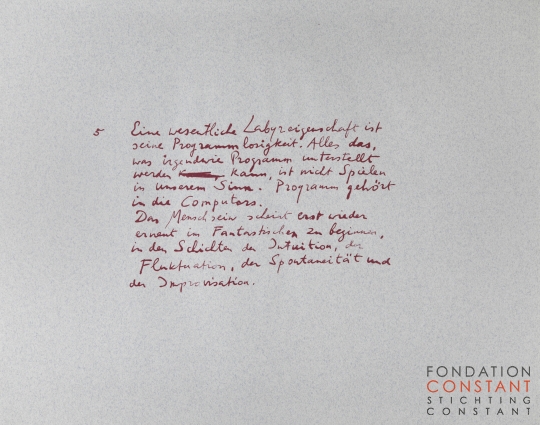 5 Eine wesentliche Labyreigenschaft ist
seine Programmlosigkeit. Alles das,
was irgendwie Programm unterstellt
werden kann, ist nicht Spielen
in unserem Sinn. Programm gehört
in die Computers.
Das Menschsein scheint erst wieder
erneut im Fantastischen zu beginnen,
in den Schichten der Intuition, der
Fluktuation, der Spontaneität und
der Improvisation.
FONDATION
CONSTANT
STICHTING
CONSTANT